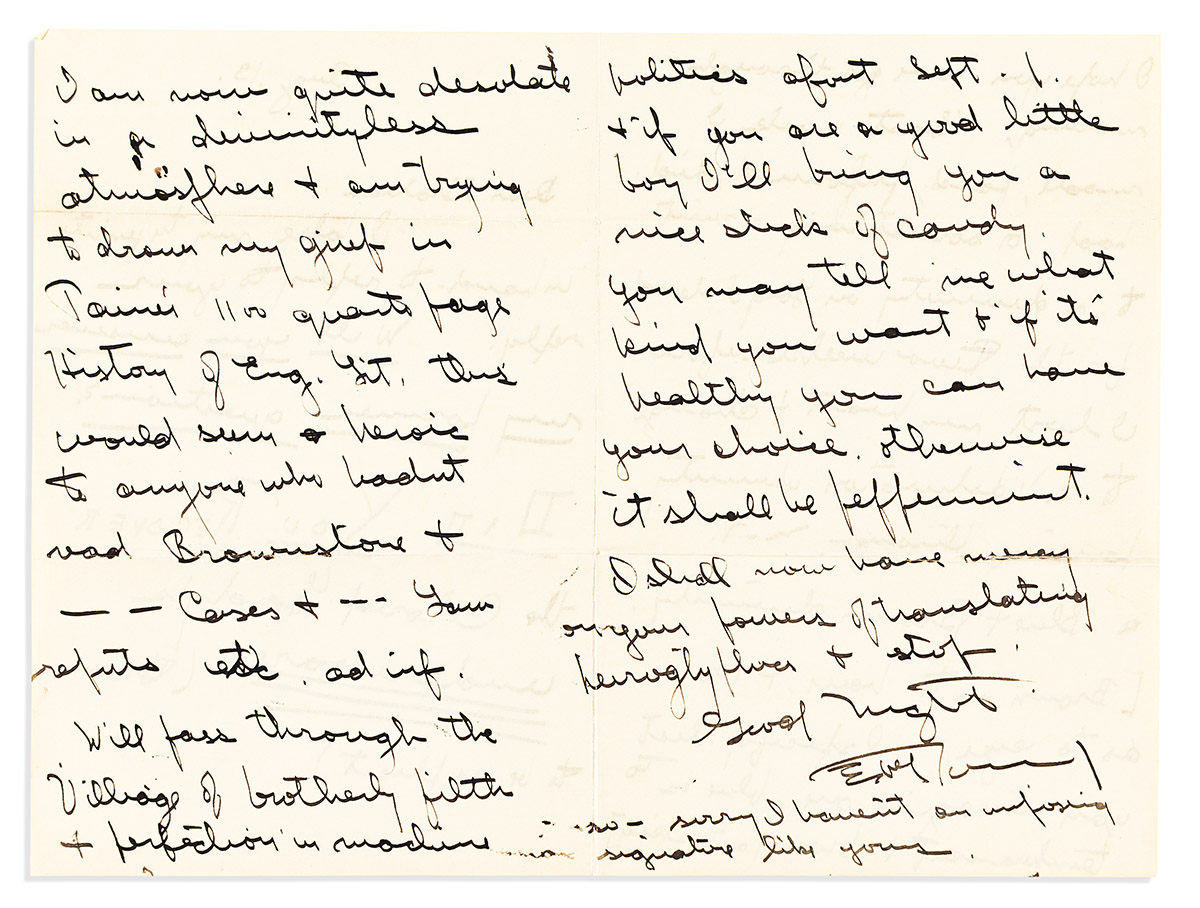 I am now quite desolate
in a divinityless
atmosphere & am trying
to drown my grief in
Taine's 1100 quarto page
History of Eng. Lit. this
would seem heroic
to anyone who hadnt
read Brownstone &
— — Cases & --- Law
repts etc. ad inf.
Will pass through the
Village of brotherly filth
& perfection in machine
politics about Sept. 1.
& if you are a good little
boy I'll bring you a
nice stick of candy.
you may tell me what
kind you want & if its
healthy you can have
your choice. otherwise
it shall be peppermint.
I shall now have mercy
on your powers of translating
heiroglyphics & stop.
Good Night
- so - sorry I havent an imposing
signature like yours.